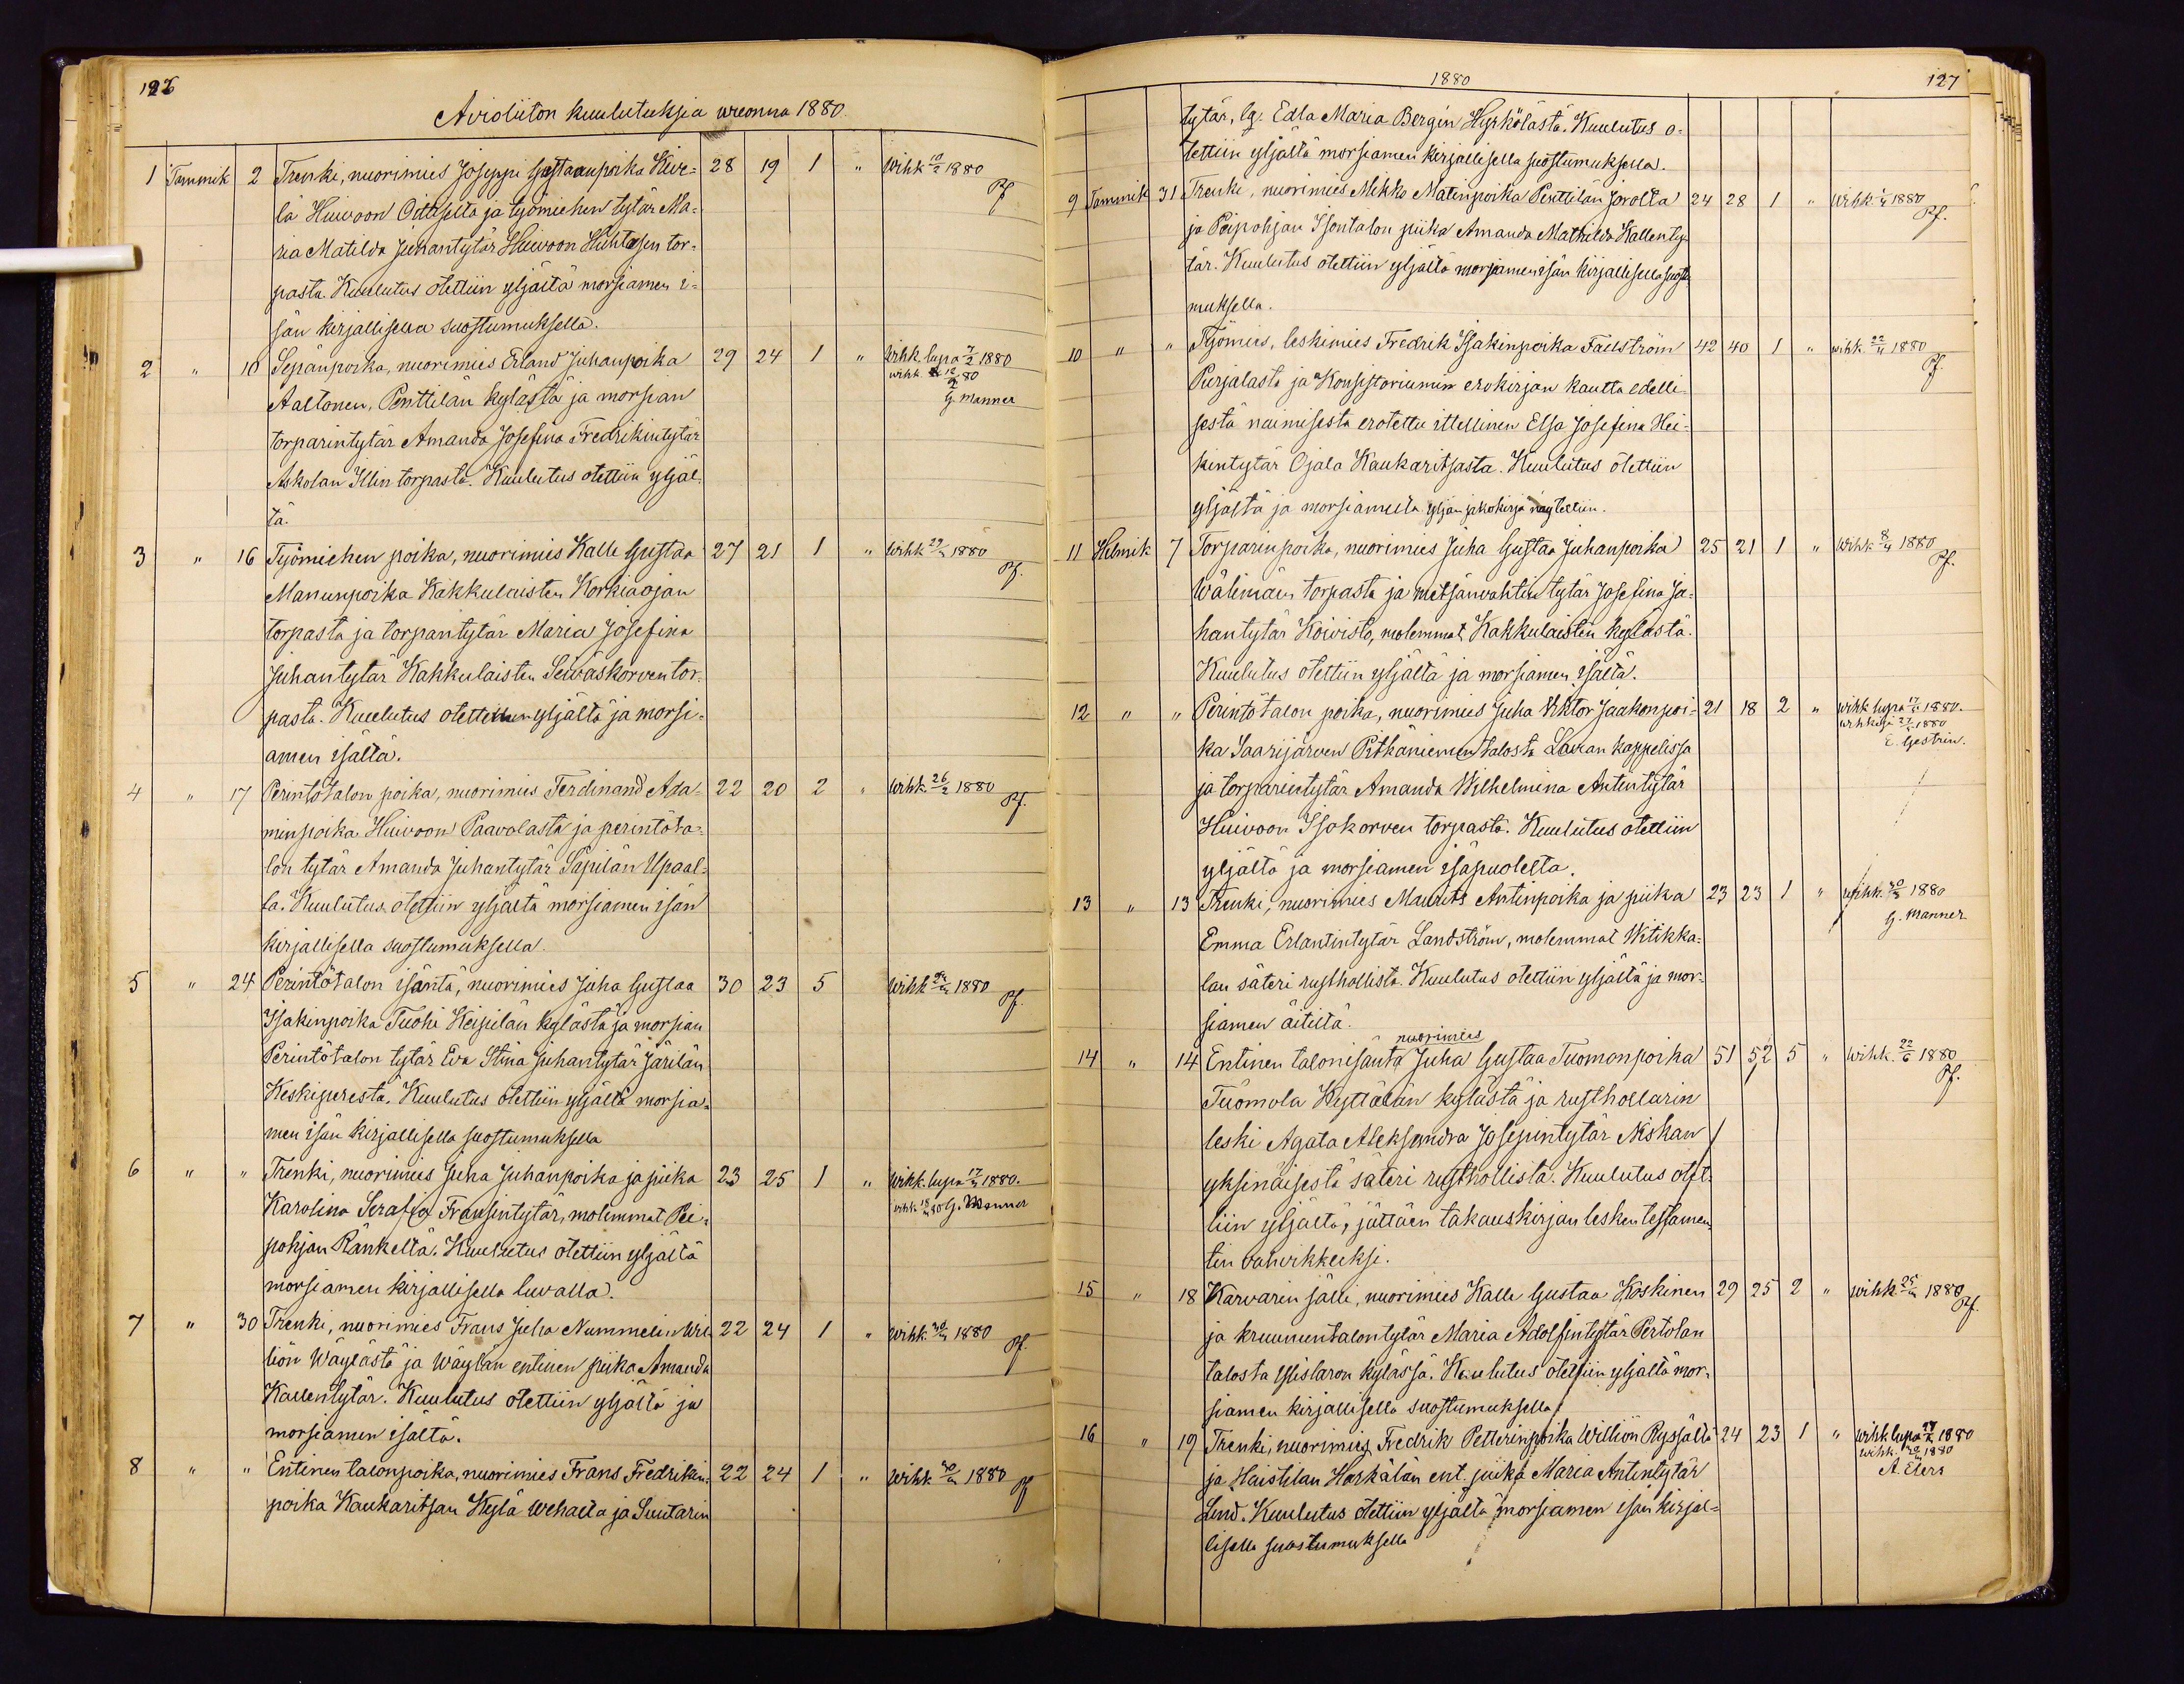 126
Avioliiton kuulutuksia wuonna 1880.
1 Tammik 2 Trenki, nuorimies Joseppi Gustaanpoika Kive= 28 19 1 " wihk 10/2 1880
lä Huivoon Ottiselta ja työmiehen tytär Ma= Pf
ria Matilda Juhantytär Huivoon Huhtasen tor=
pasta. Kuulutus otettiin yljältä morsiamen i=
sän kirjallisella suostumuksella.
2 " 10 Sepänpoika, nuorimies Erland Juhanpoika 29 24 1 " Wihk. lupa 7/2 1880
Aaltonen, Penttilän kylästä ja morsian wihk 12/2 80
torparintytär Amanda Josefina Fredrikintytär G. Manner
Askolan Illin torpasta. Kuulutus otettiin yljäl=
tä.
3 " 16 Työmiehen poika, nuorimies Kalle Gustaa 27 21 1 " Wihk 1880
Manunpoika Kakkulaisten Korkiaojan Pf.
torpasta ja torpantytär Maria Josefina
Juhantytär Kakkulaisten Seiväskorven tor=
pasta. Kuulutus otettihin yljältä ja morsi=
amen isältä.
4 " 17 Perintötalon poika, nuorimies Ferdinand Ada= 22 20 2 " Wihk. 26/2 1880
minpoika Huivoon Paavolasta ja perintöta= Pf.
lon tytär Amanda Juhantytär Säpilän Upaal=
ta. Kuulutus otettiin yljältä morsiamen isän
kirjallisella suostumuksella.
5 " 24 Perintötalon isäntä, nuorimies Juha Gustaa 30 23 5 Wihk 1880
Isakinpoika Tuohi Keipilän kylästä ja morsian Pf.
Perintötalon tytär Eva Stina Juhantytär Järilän
Keskiperestä. Kuulutus otettiin yljältä morsia=
men isän kirjallisella suostumuksella
6 " " Trenki, nuorimies Juha Juhanpoika ja piika 23 25 1 " Wihk. lupa 1880.
Karolina Serafia Fransintytär, molemmat Pei= wihk 80 G. Manner
pohjan Ränkeltä. Kuulutus otettiin yljältä
morsiamen kirjallisella luvalla.
7 " 30 Trenki, nuorimies Frans Juha Nummelin Wil= 22 24 1 " Wihk 1880
liön Wäylästä ja Wäylän entinen piika Amanda Pf.
Kallentytär. Kuulutus otettiin yljältä ja
morsiamen isältä.
8 " " Entinen talonpoika, nuorimies Frans Fredrikin= 22 24 1 " Wihk 1880
poika Kaukaritsan Kylä Wehalta ja Suutarin Pf
1880
127
tytär, lg. Edla Maria Bergin Hyrkölästä. Kuulutus o=
tettiin yljältä morsiamen kirjallisella suostumuksella.
9 Tammik 31 Trenki, nuorimies Mikko Matinpoika Penttilän Jirolta 24 28 1 " Wihk. 1880
ja Peipohjan Isontalon piika Amanda Mathilda Kallenty= Pf.
tär. Kuulutus otettiin yljältä morsiamen isän kirjallisella suostu
muksella.
10 " " Työmies, leskimies Fredrik Isakinpoika Fällström 42 40 1 " wihk. 22/4 1880
Purjalasta ja Konsistoriumin erokirjan kautta edelli= Pf.
sestä naimisesta erotettu itellinen Elsa Josefina Hei=
kintytär Ojala Kaukaritsasta. Kuulutus otettiin
yljältä ja morsiamelta yljän jakokirja näytettiin.
11 Helmik 7 Torparinpoika, nuorimies Juha Gustaa Juhanpoika 25 21 1 " Wihk 8/4 1880
Wälimäen torpasta ja metsänvahtin tytär Josefina Ja= Pf.
hantytär Koivisto, molemmat Kakkulaisten kylästä.
Kuulutus otettiin yljältä ja morsiamen isältä.
12 " " Perintötalon poika, nuorimies Juha Viktor Jaakonpoi= 21 18 2 " wihk lupa 1880.
ka Saarijärven Pitkäniemen talosta Lavian kappelissa 1880
ja torparintytär Amanda Wilhelmina Antintytär E. Gestrin.
Huivoon Isokorven torpasta. Kuulutus otettiin
yljältä ja morsiamen isäpuolelta.
13 " 13 Trenki, nuorimies Maurits Antinpoika ja piika 23 23 1 " wihk. 1880
Emma Erlantintytär Landström, molemmat Witikka= G. Manner
lan säteri rusthollista. Kuulutus otettiin yljältä ja mor=
siamen äitiltä.
nuorimies
14 " 14 Entinen talonisäntä Juha Gustaa Tuomonpoika 51 52 5 " Wihk. 22/6 1880
Tuomola Kyttälän kylästä ja rusthollarin Pf.
leski Agata Aleksandra Josepintytär Niskan
yksinäisestä säteri rusthollista. Kuulutus otet=
tiin yljältä, jättäen takauskirjan lesken testamen
tin vahvikkeeksi.
15 " 18 Karvarin sälli, nuorimies Kalle Gustaa Koskinen 29 25 2 " wihk 1880
ja kruununtalontytär Maria Adolfintytär Pertolan Pf.
talosta Ylistaron kylässä. Kuulutus otettiin yljältä mor=
siamen kirjallisella suostumuksella.
16 " 19 Trenki, nuorimies Fredrik Petterinpoika Williön Ryssältä 24 23 1 " wihk lupa 1880
ja Haistilan Harkälän ent. piika Maria Antintytär wihk. 1880
Lind. Kuulutus otettiin yljältä morsiamen isän kirjal= A. Elers
lisella suostumuksella